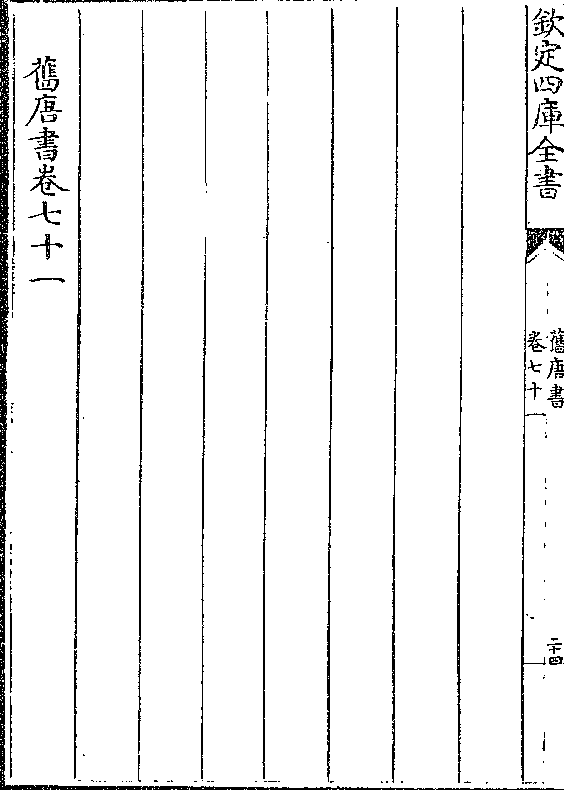 欽定四庫全書
舊唐書
卷七十一
二十四
舊唐書卷七十一